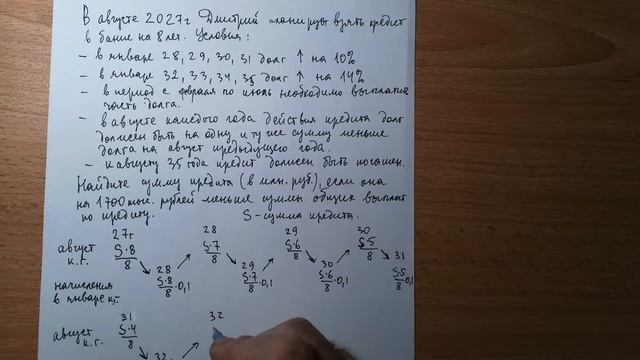 В августе 2027г Дмитрий планирует взять кредит
в банке на 8 лет. Условия:
- в январе 28, 29, 30, 31 долг ↑ на 10%
- в январе 32, 33, 34, 35 долг ↑ на 14%
- в период с февраля по июль необходимо выплатить
часть долга.
- в августе каждого года действия кредита долг
должен быть на одну и ту же сумму меньше
долга на август предыдущего года.
- к августу 35 года кредит должен быть погашен.
Найдите сумму кредита (в млн. руб.), если она
на 1700 тыс. рублей меньше суммы общих выплат
по кредиту. S - сумма кредита.
27г 28 29 30
август к.г. S·8/8 S·7/8 S·6/8 S·5/8
28 29 30 31
начисления в январе к.г. S·8/8·0,1 S·7/8·0,1 S·6/8·0,1 S·5/8·0,1
31 32
август к.г. S·4/8
32